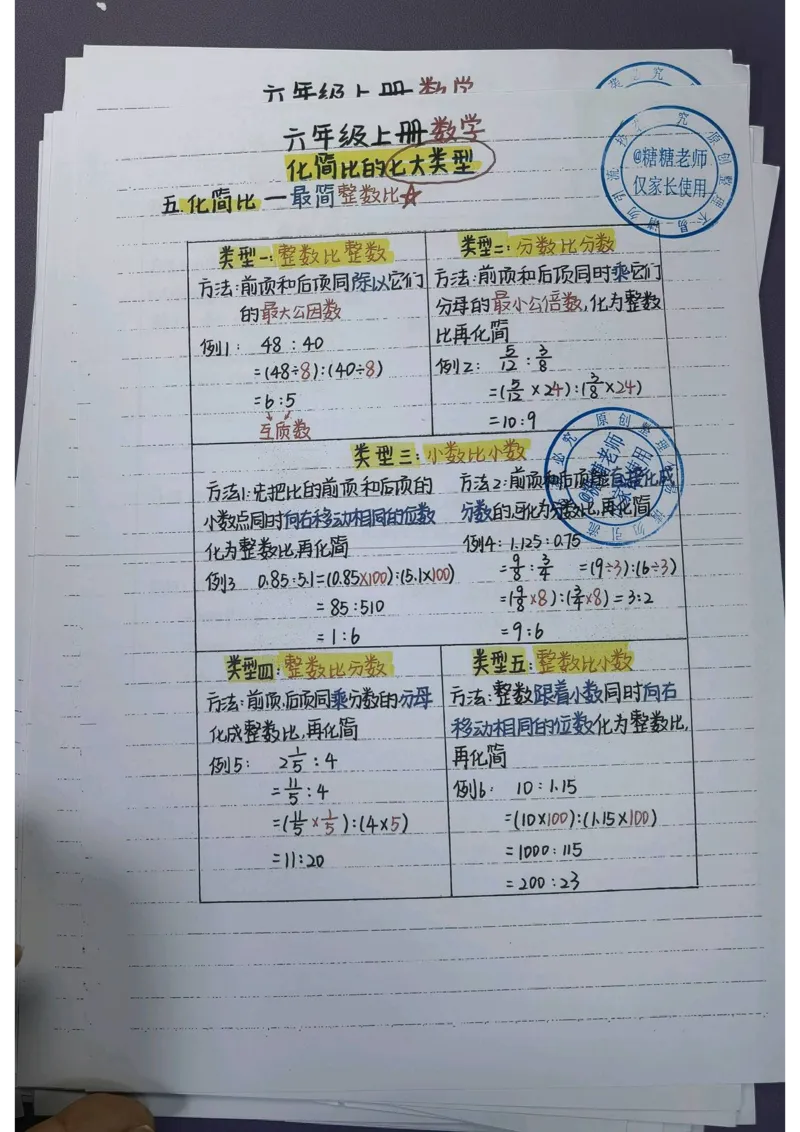 六年级上册数学
六年级上册数学
化简比的七大类型
五.化简比 — 最简整数比☆
@糖糖老师
仅家长使用
类型一:整数比整数
方法:前项和后项同除以它们
的最大公因数
例1: 48 : 40
=(48÷8):(40÷8)
=6:5
互质数
类型二:分数比分数
方法:前项和后项同时乘它们
分母的最小公倍数,化为整数
比再化简
例2: 5/12 : 3/8
=(5/12 ×24):(3/8×24)
=10:9
类型三:小数比小数
方法1:先把比的前项和后项的
小数点同时向右移动相同的位数
化为整数比,再化简
例3 0.85:5.1=(0.85×100):(5.1×100)
=85:510
=1:6
方法2:前项和后项能直接化成
分数的,可化为分数比,再化简
例4: 1.125:0.75
=9/8:3/4 =(9÷3):(6÷3)
=(9/8×8):(3/4×8) =3:2
=9:6
@糖糖老师
类型四:整数比分数
方法:前项.后项同乘分数的分母
化成整数比,再化简
例5: 2 1/5 : 4
=11/5 : 4
=(11/5 × 1/5):(4×5)
=11:20
类型五:整数比小数
方法:整数跟着小数同时向右
移动相同的位数化为整数比,
再化简
例6: 10:1.15
=(10×100):(1.15×100)
=1000:115
=200:23